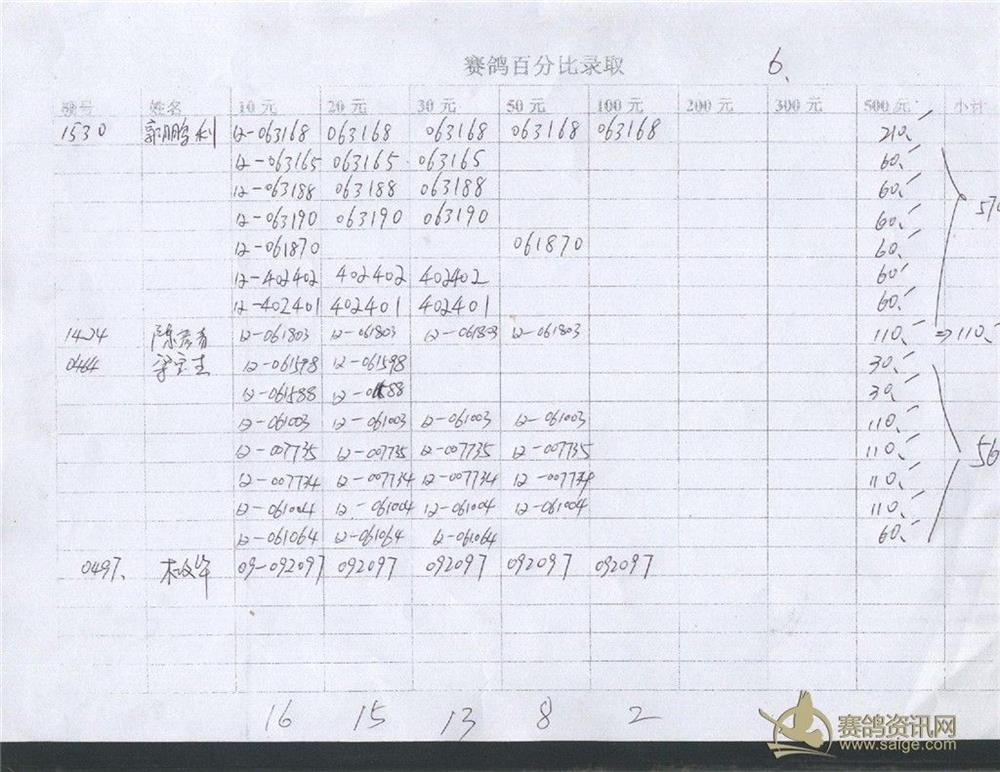 赛鸽百分比录取 6、
棚号 姓名 10 元 20 元 30 元 50 元 100 元 200 元 300 元 500 元 小计
1530 郭鹏利 12-063168 063168 063168 063168 063168 210、
12-063165 063165 063165 60、
12-063188 063188 063188 60、
12-063190 063190 063190 60、 570
12-061870 061870 60、
12-402402 402402 402402 60
12-402401 402401 402401 60、
1424 12-061803 12-061803 12-061803 12-061803 110、 ⇒110、
0464 12-061598 12-061598 30、
12-061588 30、
12-061003 12-061003 12-061003 12-061003 110、
12-007735 12-007735 12-007735 12-007735 110、 56
12-007734 12-007734 12-007734 12-007734 110、
12-061004 12-061004 12-061004 12-061004 110、
12-061064 12-061064 12-061064 60、
0497、 09-092097 092097 092097 092097 092097
16 15 13 8 2
赛鸽资讯网
www.saige.com